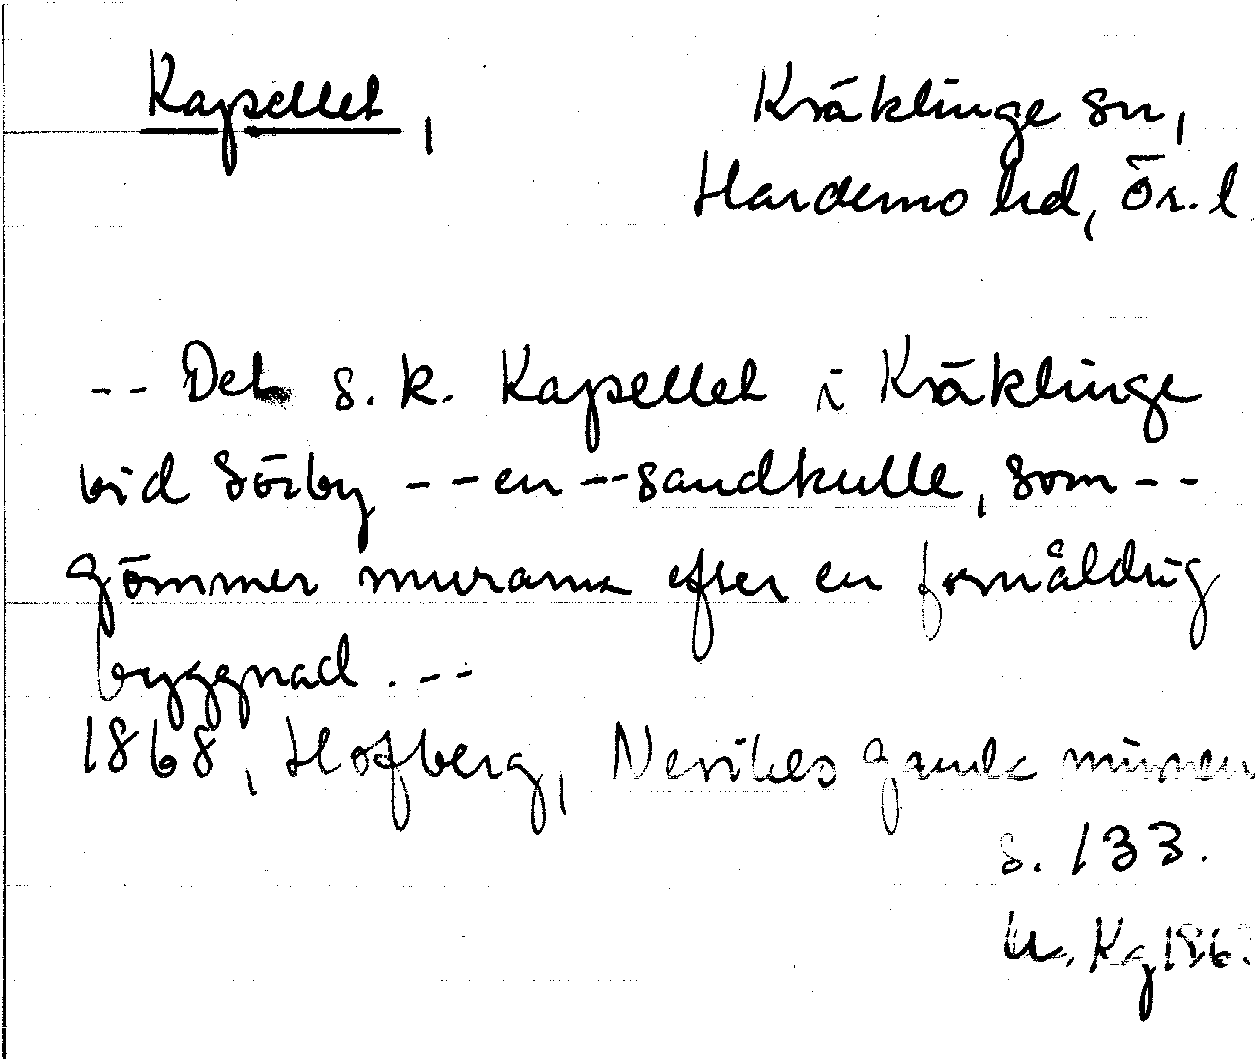 Kapellet, Kräklinge sn,
Hardemo hd, Ör. l
-- Det s. k. Kapellet i Kräklinge
vid Sörby -- en -- sandkulle, som --
gömmer murarna efter en fornåldrig
byggnad. --
1868, Hofberg, Nerikes gamla minnen
s. 133.